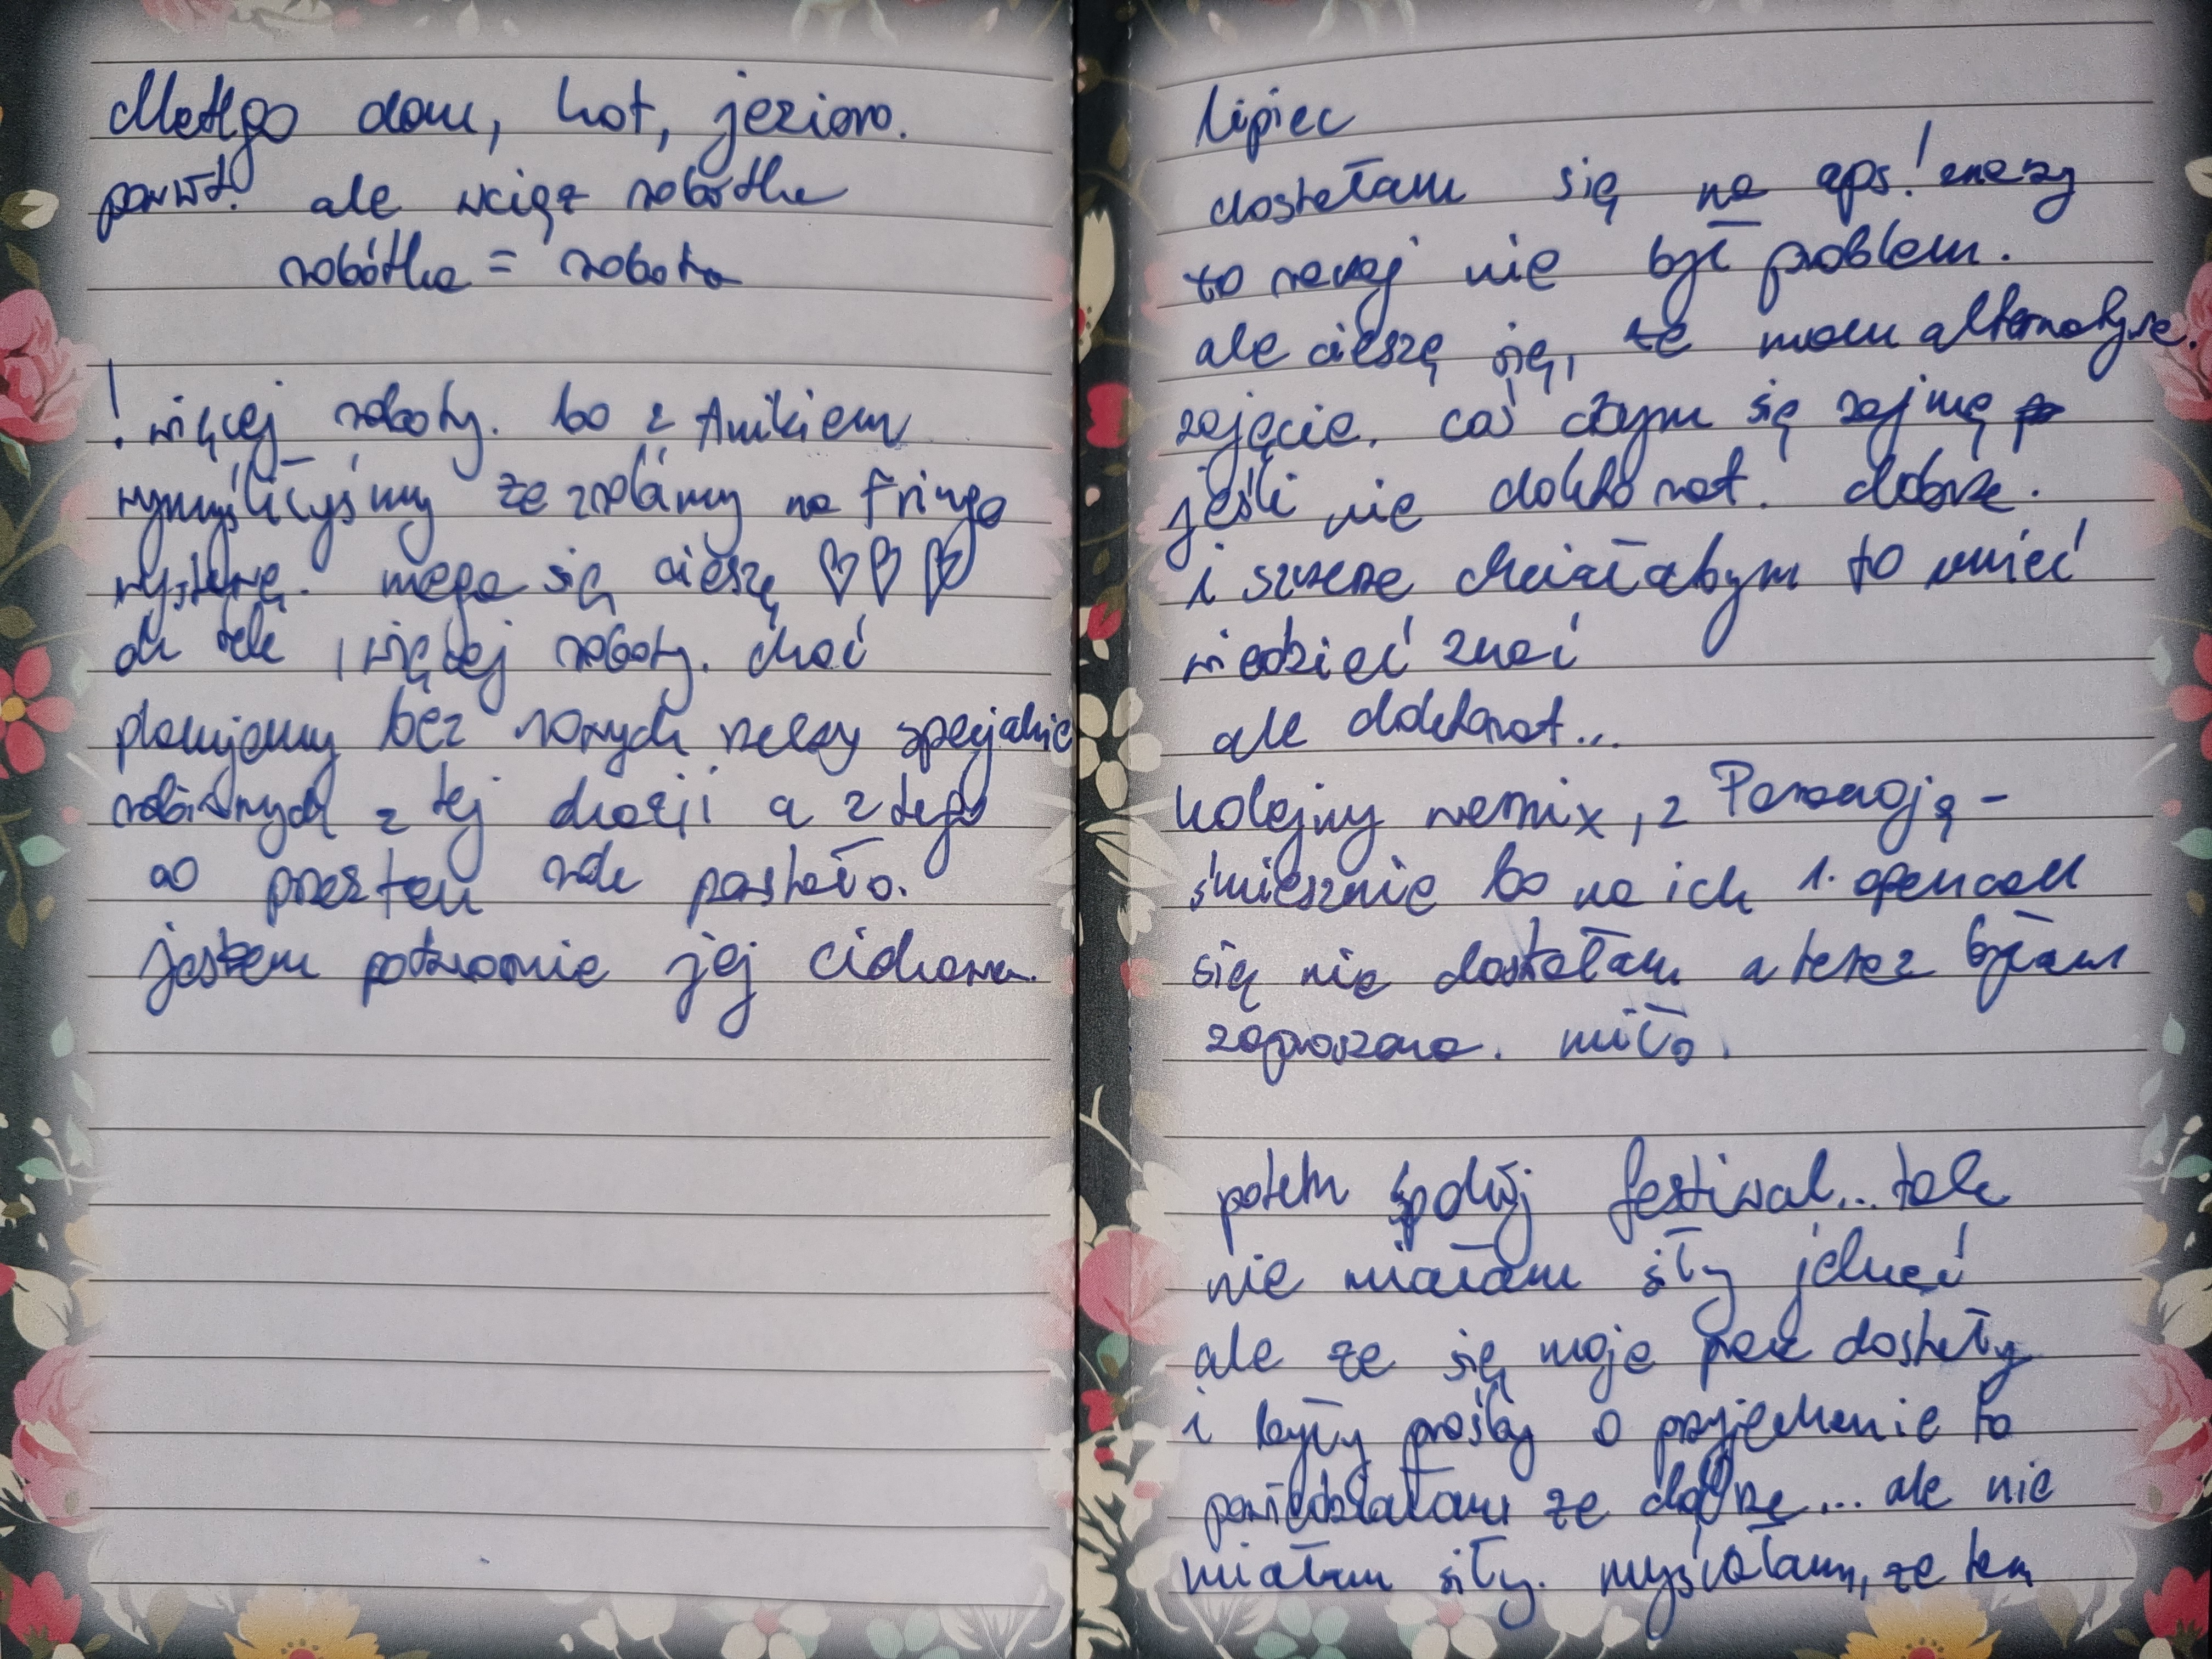 dom, kot, jezioro.
powrót. ale wciąż robótka
robótka = robota
! więcej roboty. bo z Anikiem
wymyśliłyśmy że zrobimy na Fringe
wystawę. mega się cieszę ♡♡♡
ale tak, więcej roboty. choć
planujemy bez nowych rzeczy specjalnie
robionych z tej okazji a z tego
co przez ten rok powstało.
jestem potwornie jej ciekawa.
lipiec
dostałam się na aps! znaczy
to raczej nie był problem.
ale cieszę się, że mam alternatywę.
zajęcie. coś czym się zajmę
jeśli nie doktorat. dobrze.
i szczerze chciałabym to umieć
wiedzieć znać
ale doktorat...
kolejny wernix, z Paranoją -
śmiesznie bo na ich 1. open call
się nie dostałam a teraz byłam
zaproszona. miło.
potem spokój festiwal... tak
nie miałam siły jechać
ale że się moje prace dostały
i były prośby o przyjechanie to
powiedziałam że dobrze... ale nie
miałam siły. myślałam, że tam